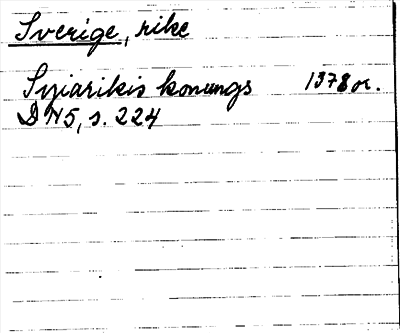 Sverige, rike
Syiarikis konungs 1378 or.
DN 5, s. 224